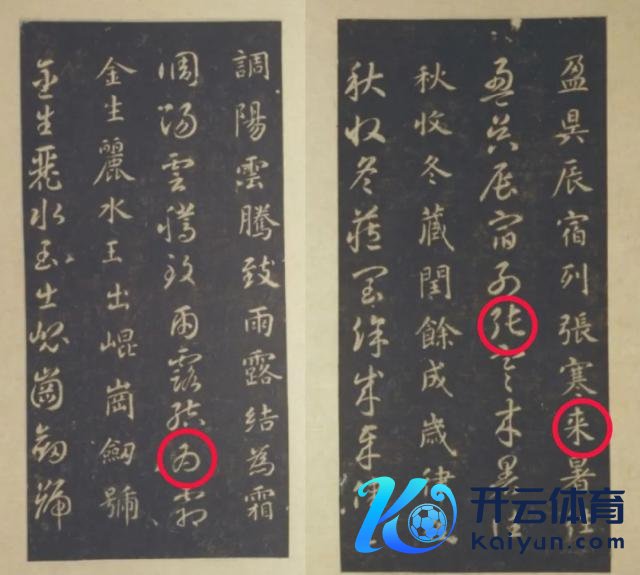 盈昃辰宿列張寒来暑
盈昃辰宿列张寒来暑
秋收冬藏閏餘成歲律
秋收冬藏閏餘成歲律
調陽雲騰致雨露結為霜
調陽雲騰致雨露结为霜
金生麗水玉出崐崗劒號
金生麗水玉出崐崗劒號
开云体育
Kaiyun.com